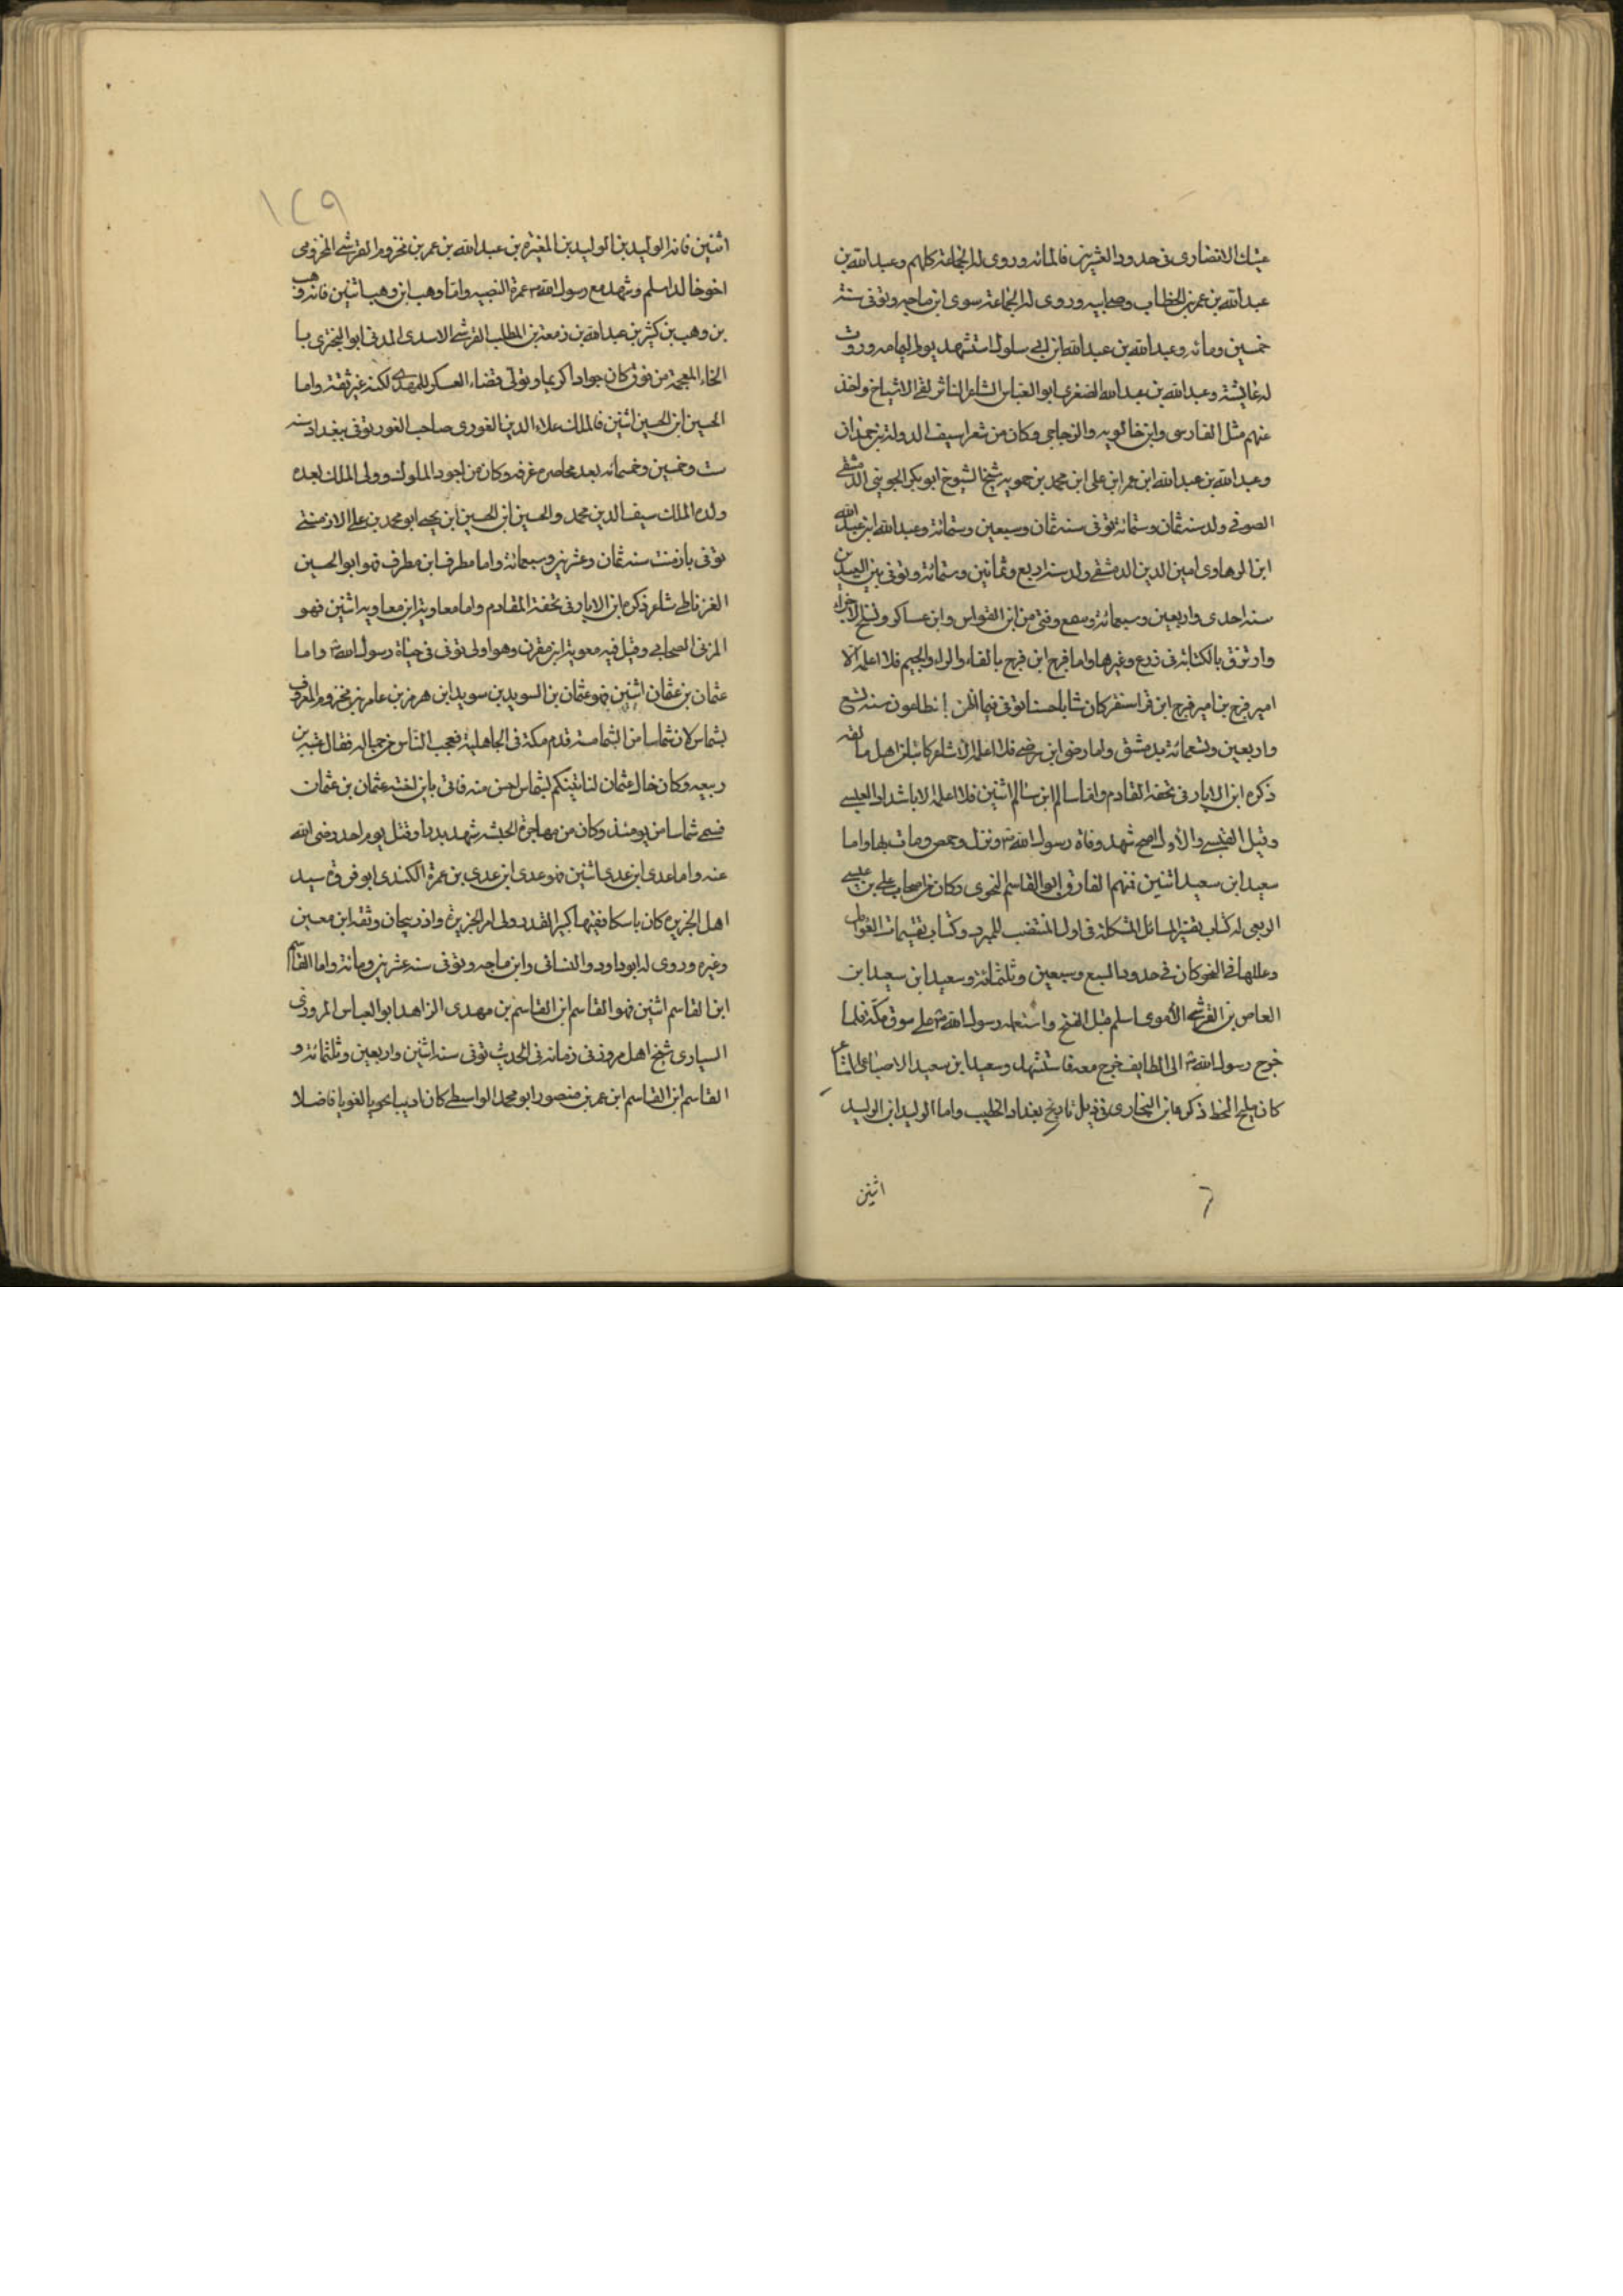 عتيك الانصارى فى حدود العشرين فالمائه وروى له الجماعة كلهم وعبد الله بن
عبد الله بن عمر بن الخطاب وصحابيه وروى له الجماعة سوى ابن ماجه وتوفى سنة
خمسين ومائه وعبد الله بن عبد الله ابن ابى سلول استشهد يوم اليمامه وروت
له عائشة وعبد الله بن عبد الله الصفرى ابو العباس الشاعر الناثر لقى الاشياخ واخذ
عنهم مثل الفارسى وابن خالويه والزجاجى وكان من شعرا سيف الدولة بن حمدان
وعبد الله بن عبد الله ابن عمر ابن على ابن محمد بن حمويه شيخ الشيوخ ابو بكر الجوينى الدمشقى
الصوفى ولد سنه ثمان وستمائة توفى سنه ثمان وسبعين وستمائة وعبد الله ابن عبد الله
ابن الرهاوى امين الدين الدمشقى ولد سنه اربع وثمانين وستمائة وتوفى بين العيدين
سنه احدى واربعين وسبعمائة وسمع من ابن القواس وابن عساكر ونسخ الاجزاء
وارتزق بالكتابة فى زرع وغيرها واما فرج ابن فرج بالفاء والراء والجيم فلا اعلم الا
امير فرج بن امير فرج ابن قراسنقر كان شابا حسنا توفى فيما اظن بالطاعون سنه تسع
واربعين وتسعمائة بدمشق واما رضى ابن رضى فلا اعلم الا شاعر كاتبا من اهل مالقه
ذكره ابن الابار فى تحفة القادم واما سالم ابن سالم اثنين فلا اعلم الا ابا شداد العبسى
وقيل القيسى والاول اصح شهد وفاة رسول الله ص ونزل وحمص ومات بها واما
سعيد ابن سعيد اثنين فمنهم الفارقى ابو القاسم النحوى وكان من اصحاب على بن عيسى
الربعى له كتاب تفسير المسائل المشكلة فى اول المقتضب للمبرد وكتاب تقسيمات العوامل
وعللها فى النحو كان فى حدود السبع وسبعين وثلثمائة وسعيد ابن سعيد ابن
العاص بن القرشى الاموى اسلم قبل الفتح واستعمله رسول الله ص على سوق مكة فلما
خرج رسول الله ص الى الطايف خرج معه فاستشهد وسعيد ابن سعيد الاصباعى الشاعر
كان مليح الخط ذكره ابن النجارى فى ذيل تاريخ بغداد الخطيب واما الوليد ابن الوليد
اثنين
١٢٩
اثنين فانه الوليد بن الوليد بن المغيرة بن عبد الله بن عمر بن مخزوم القرشى المخزومى
اخو خالد اسلم وشهد مع رسول الله ص عمرة القضيه واما وهب ابن وهب اثنين فانه وهب
بن وهب بن كثير بن عبد الله بن زمعة بن المطلب القرشى الاسدى المدنى ابو البخترى بـا
الخاء المعجمة من فوق كان جوادا كريما وتولى قضاء العسكر للمهدى لكنه غير ثقة واما
الحسين ابن الحسين اثنين فالملك علاء الدين الغورى صاحب الغور توفى ببغداد سنه
ست وخمسين وخمسمائه بعد محاصره غزنه وكان من اجود الملوك وولى الملك بعده
ولده الملك سيف الدين محمد والحسين ابن الحسين ابن يحيى ابو محمد بن على الارمنتى
توفى بارمنت سنه ثمان وعشرين وسبعمائة واما مطرف ابن مطرف فهو ابو الحسين
الغرناطى شاعر ذكره ابن الابار فى تحفة القادم واما معاوية ابن معاويه اثنين فهو
المزنى الصحابى وقيل فيه معوية ابن مقرن وهو اولى توفى فى حياة رسول الله ص واما
عثمان بن عفان اثنين فهو عثمان بن السويد بن سويد ابن هرمز بن عامر بن مخزوم المعروف
بشماس لان شماسا من الشمامسة قدم مكة فى الجاهلية فعجب الناس من جماله فقال عتبه بن
ربيعه وكان خال عثمان لنا تينكم بشماس احسن منه فاتى بابن اخته عثمان بن عثمان
فسمى شماسا من يومئذ وكان من مهاجرة الحبشه شهد بدرا وقتل يوم احد رضى الله
عنه واما عدى ابن عدى اثنين فهو عدى ابن عدى بن عمرة الكندى ابو فروة سيد
اهل الجزيره كان ناسكا فقيها كبير القدر ولى امر الجزيرة واذربيجان وثقه ابن معين
وغيره وروى له ابو داود والنسائى وابن ماجه وتوفى سنه عشرين ومائة واما القاسم
ابن القاسم اثنين فهو القاسم ابن القاسم بن مهدى الزاهد ابو العباس المروزى
السيارى شيخ اهل مرو فى زمانه فى الحديث توفى سنه اثنين واربعين وثلثمائة و
القاسم ابن القاسم ابن عمر بن منصور ابو محمد الواسطى كان اديبا نحويا لغويا فاضلا